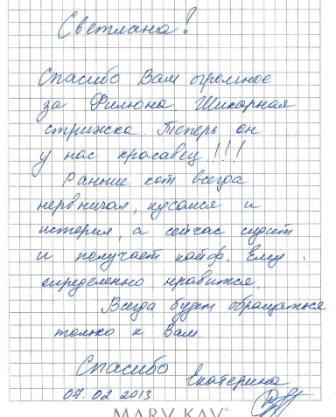 Светлана!
Спасибо Вам огромное
за Филюна. Шикарная
стрижка. Теперь он
у нас красавец!!!
Раньше кот всегда
нервничал, кусался и
истерил, а сейчас сидит
и получает кайф. Ему
определенно нравится.
Всегда будем обращаться
только к Вам
Спасибо
Екатерина
07.02.2013
MARY KAY